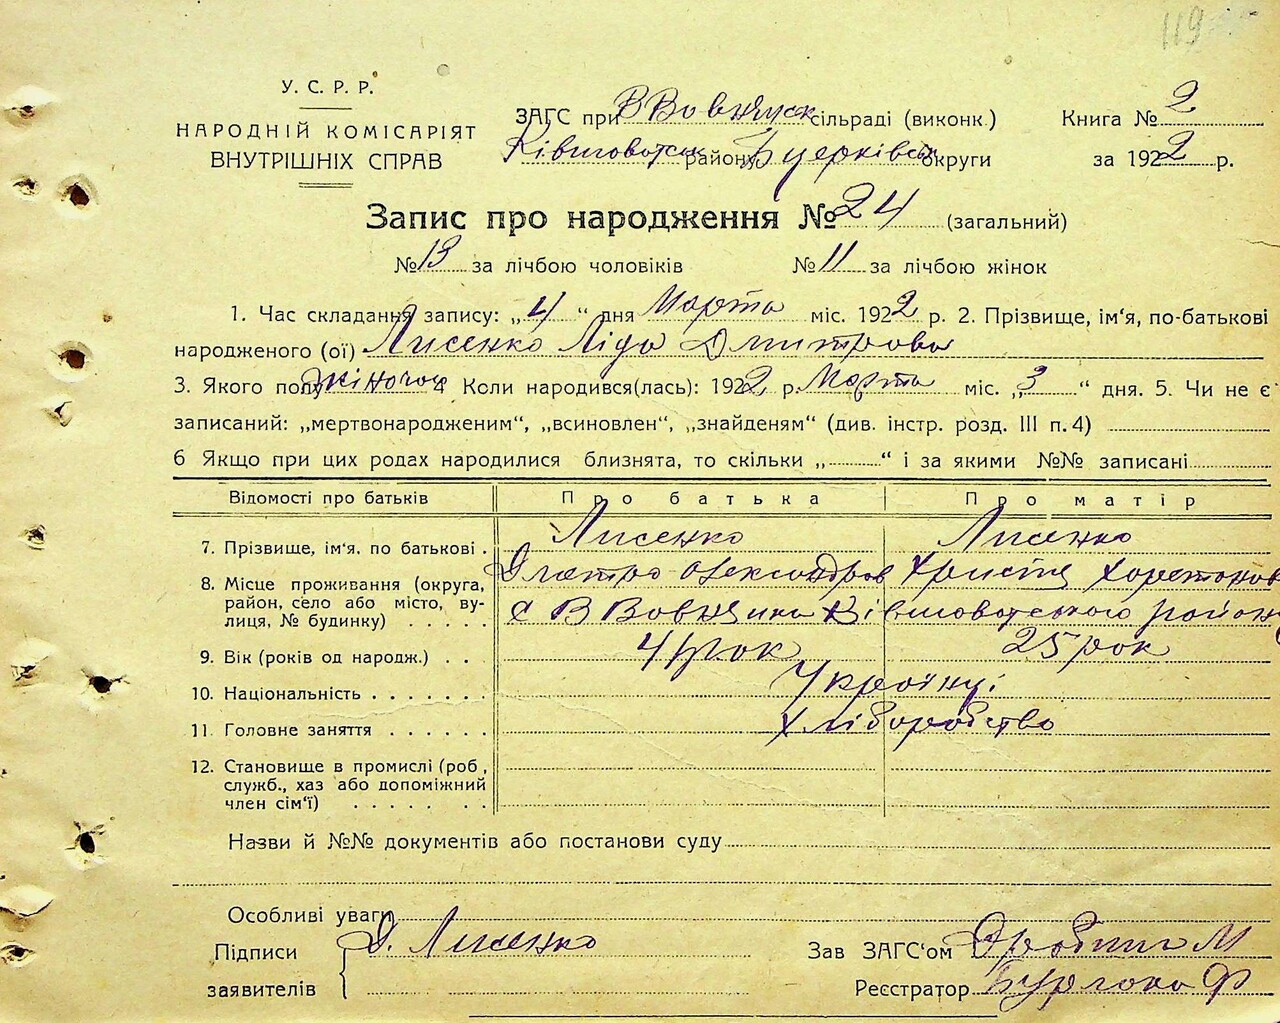 119
У. С. Р. Р.
НАРОДНІЙ КОМІСАРІЯТ
ВНУТРІШНІХ СПРАВ
ЗАГС при В Вовнянск сільраді (виконк.)
Ківшоватск району Бцерківськ округи
Книга № 2
за 1922 р.
Запис про народження № 24 (загальний)
№ 13 за лічбою чоловіків № 11 за лічбою жінок
1. Час складання запису: „4“ дня Марта міс. 1922 р. 2. Прізвище, ім'я, по-батькові
народженого (ої) Лисенко Ліда Дмитрова
3. Якого полу жіночого 4 Коли народився(лась): 1922 р. Марта міс. „3“ дня. 5. Чи не є
записаний: „мертвонародженим“, „всиновлен“, „знайденям“ (див. інстр. розд. III п. 4)
6 Якщо при цих родах народилися близнята, то скільки „ “ і за якими №№ записані
Відомості про батьків Про батька Про матір
7. Прізвище, ім'я, по батькові Лисенко Лисенко
Дметро Олександров Христя Харетонов
8. Місце проживання (округа,
район, село або місто, ву-
лиця, № будинку)
с В Вовнянка Ківшоватського району
9. Вік (років од народж.) 41 рок 25 рок
10. Національність Українці
11. Головне заняття Хліборобство
12. Становище в промислі (роб,
служб., хаз або допоміжний
член сім'ї)
Назви й №№ документів або постанови суду
Особливі уваги
Підписи Д. Лисенко
заявителів
Зав ЗАГС'ом М
Реєстратор Бурлака Ф